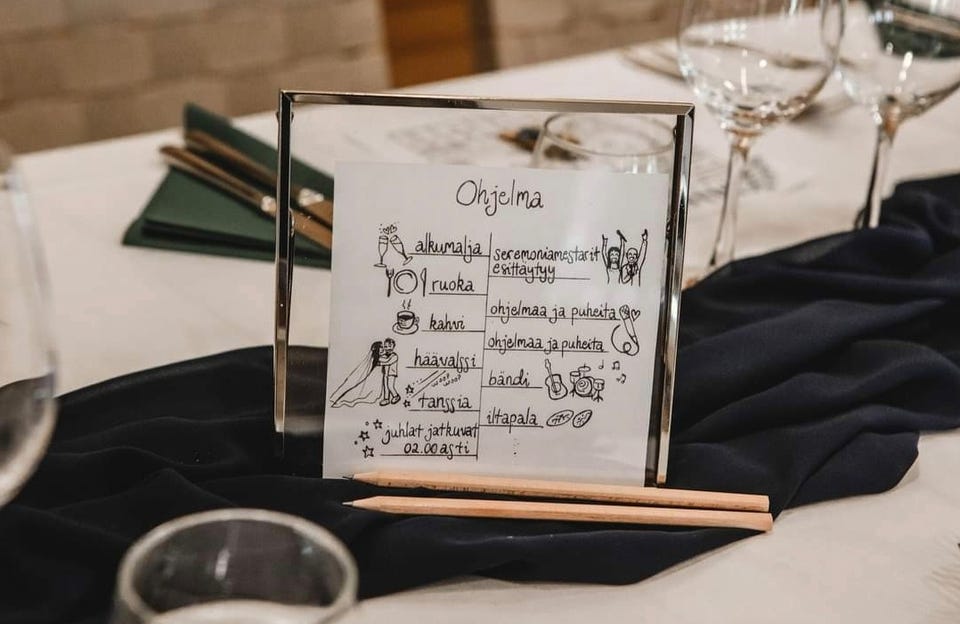 Ohjelma
alkumalja
seremoniamestarit
esittäytyy
ruoka
ohjelmaa ja puheita
kahvi
ohjelmaa ja puheita
häävalssi
bändi
tanssia
iltapala
juhlat jatkuvat
02.00 asti